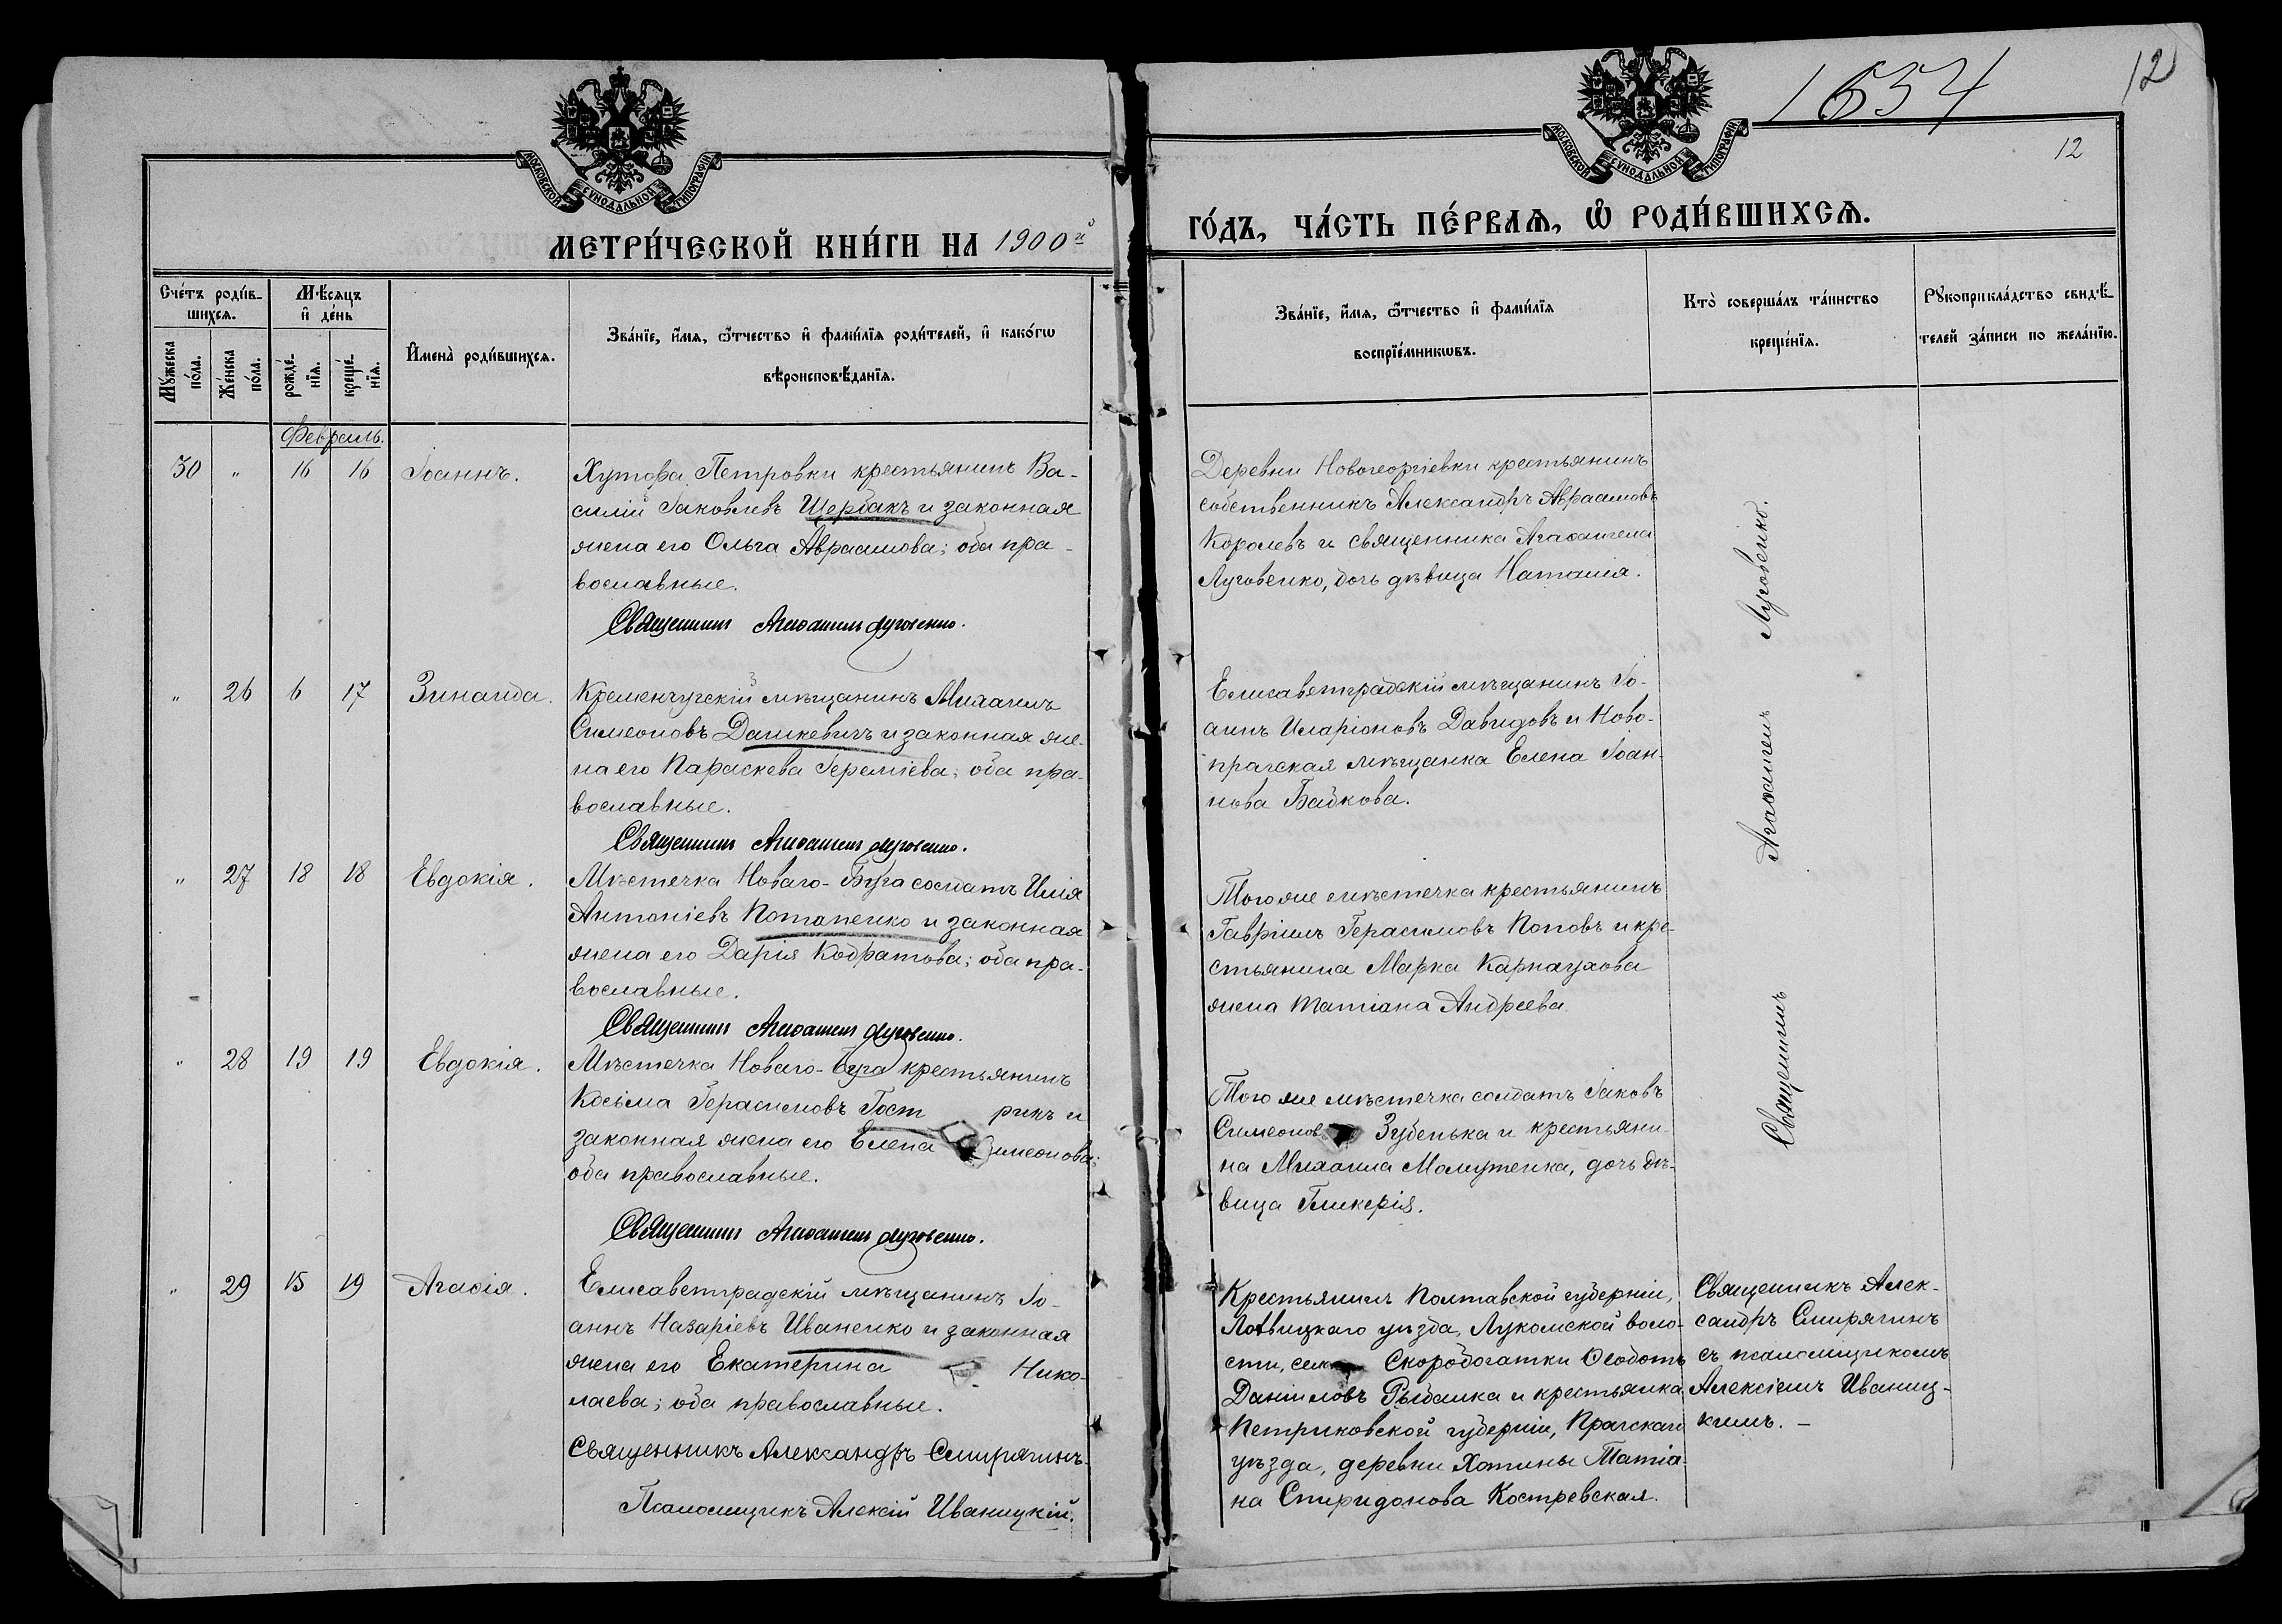 1654
12
12
МОСКОВСКОЙ СѴНОДАЛЬНОЙ ТИПОГРАФІИ
МОСКОВСКОЙ СѴНОДАЛЬНОЙ ТИПОГРАФІИ
МЕТРИ́ЧЕСКОЙ КНИ́ГИ НА 1900й
ГО́ДЪ, ЧА́СТЬ ПЕ́РВАѦ, Ѽ РОДИ́ВШИХСѦ.
Сче́тъ роди́в-
шихсѧ.
Мꙋжеска по́ла.
Же́нска по́ла.
Мѣ́сѧцъ
и҆ де́нь
рожде́-
нїѧ.
креще́-
нїѧ.
И҆мена̀ роди́вшихсѧ.
Зва́нїе, и҆́мѧ, ѻ҆́тчество и҆ фами́лїѧ роди́телей, и҆ како́гѡ
вѣроисповѣ́данїѧ.
Зва́нїе, и҆́мѧ, ѻ҆́тчество и҆ фами́лїѧ
воспрїе́мникѡвъ.
Кто̀ соверша́лъ та́инство
креще́нїѧ.
Рꙋкоприкла́дство свидѣ́-
телей за́писи по жела́нїю.
Февраль.
30 " 16 16 Іоаннъ.
Хутора Петровки крестьянинъ Ва-
силій Іаковлевъ Щербакъ и законная
жена его Ольга Авраамова; оба пра-
вославные.
Священникъ Агаѳангелъ Луговенко.
Деревни Новогеоргіевки крестьянинъ
собственникъ Александръ Авраамовъ
Королевъ и священника Агаѳангела
Луговенко, дочь дѣвица Наталія.
" 26 6 17 Зинаида.
Кременчугскій мѣщанинъ Михаилъ
Симеоновъ Дашкевичъ и законная же-
на его Параскева Іереміева; оба пра-
вославные.
Священникъ Агаѳангелъ Луговенко.
Елисаветградскій мѣщанинъ Іо-
аннъ Иларіоновъ Давидовъ и Ново-
прагская мѣщанка Елена Іоан-
нова Байкова.
" 27 18 18 Евдокія.
Мѣстечка Новаго-Буга солдатъ Илія
Антоніевъ Потапенко и законная
жена его Дарія Кодратова; оба пра-
вославные.
Священникъ Агаѳангелъ Луговенко.
Того же мѣстечка крестьянинъ
Гавріилъ Герасимовъ Поповъ и кре-
стьянина Марка Карнаухова
жена Татіана Андреева.
" 28 19 19 Евдокія.
Мѣстечка Новаго-Буга крестьянинъ
Косьма Герасимовъ Гост рикъ и
законная жена его Елена Симеонова;
оба православные.
Священникъ Агаѳангелъ Луговенко.
Того же мѣстечка солдатъ Іаковъ
Симеонов Зубенька и крестьяни-
на Михаила Малутенка, дочь дѣ-
вица Гликерія.
Священникъ Агаѳангелъ Луговенко.
" 29 15 19 Агаѳія.
Елисаветградскій мѣщанинъ Іо-
аннъ Назаріевъ Иваненко и законная
жена его Екатерина Нико-
лаева; оба православные.
Священникъ Александръ Смирягинъ.
Псаломщикъ Алексій Иваницкій.
Крестьянинъ Полтавской губерніи,
Лохвицкаго уѣзда, Лукомской воло-
сти, сел Скоробогатки Ѳеодотъ
Даніиловъ Рыбалка и крестьянка
Петриковской губерніи, Прагскаго
уѣзда, деревни Хотины Татіа-
на Спиридонова Костревская.
Священникъ Алек-
сандръ Смирягинъ
съ псаломщикомъ
Алексіемъ Иваниц-
кимъ. —